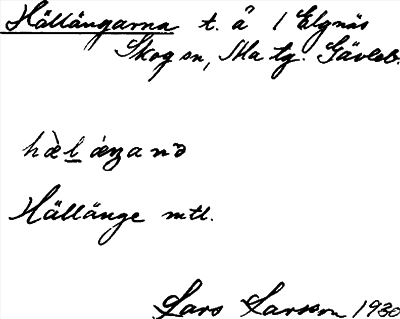 Hällängarna t. å 1 Elgnäs
Skog sn, Ma tg. Gävleb.
hæ̀l ǽŋaṇə
Hällänge mtl.
Lars Larsson 1930